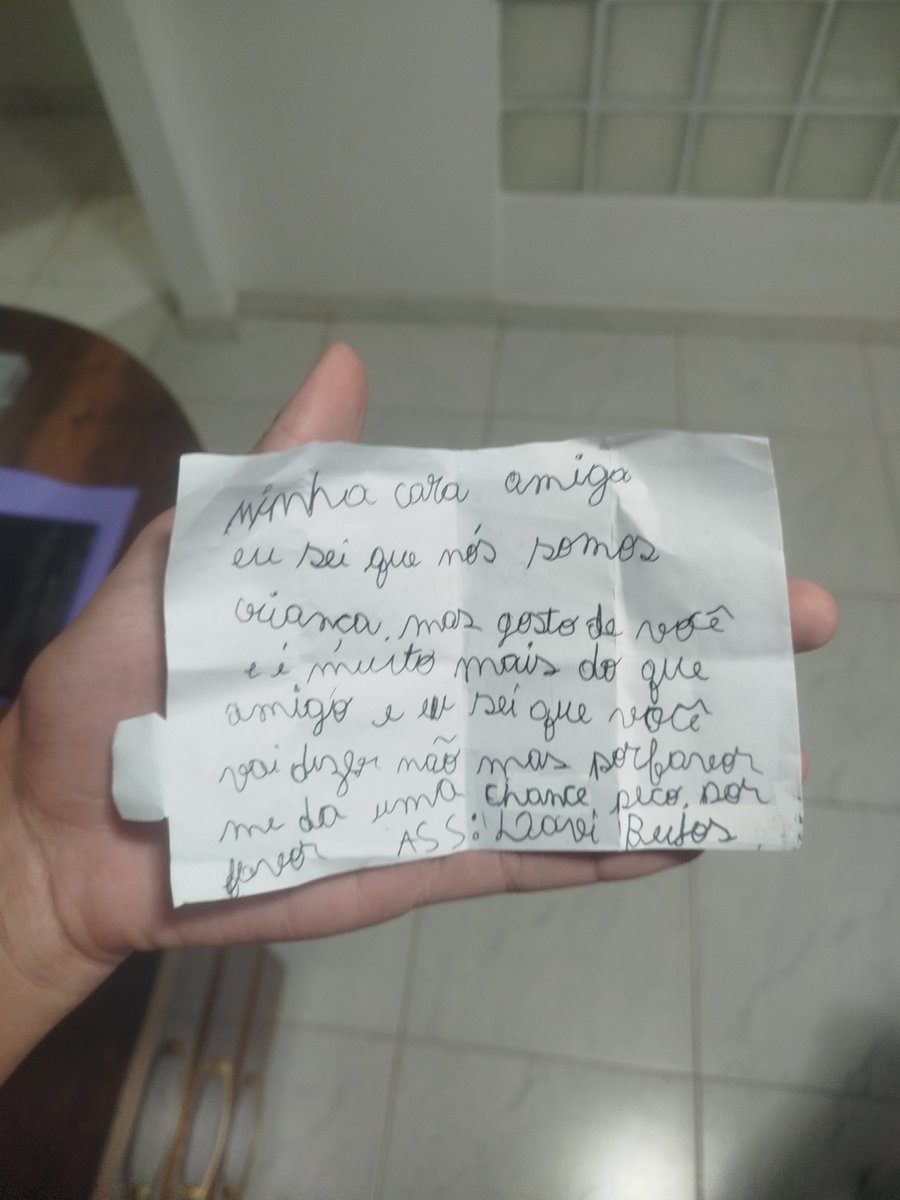 minha cara amiga
eu sei que nós somos
criança, mas gosto de você
e é muito mais do que
amigo e eu sei que você
vai dizer não mas porfavor
me da uma chance peço, por
favor ASS: Davi